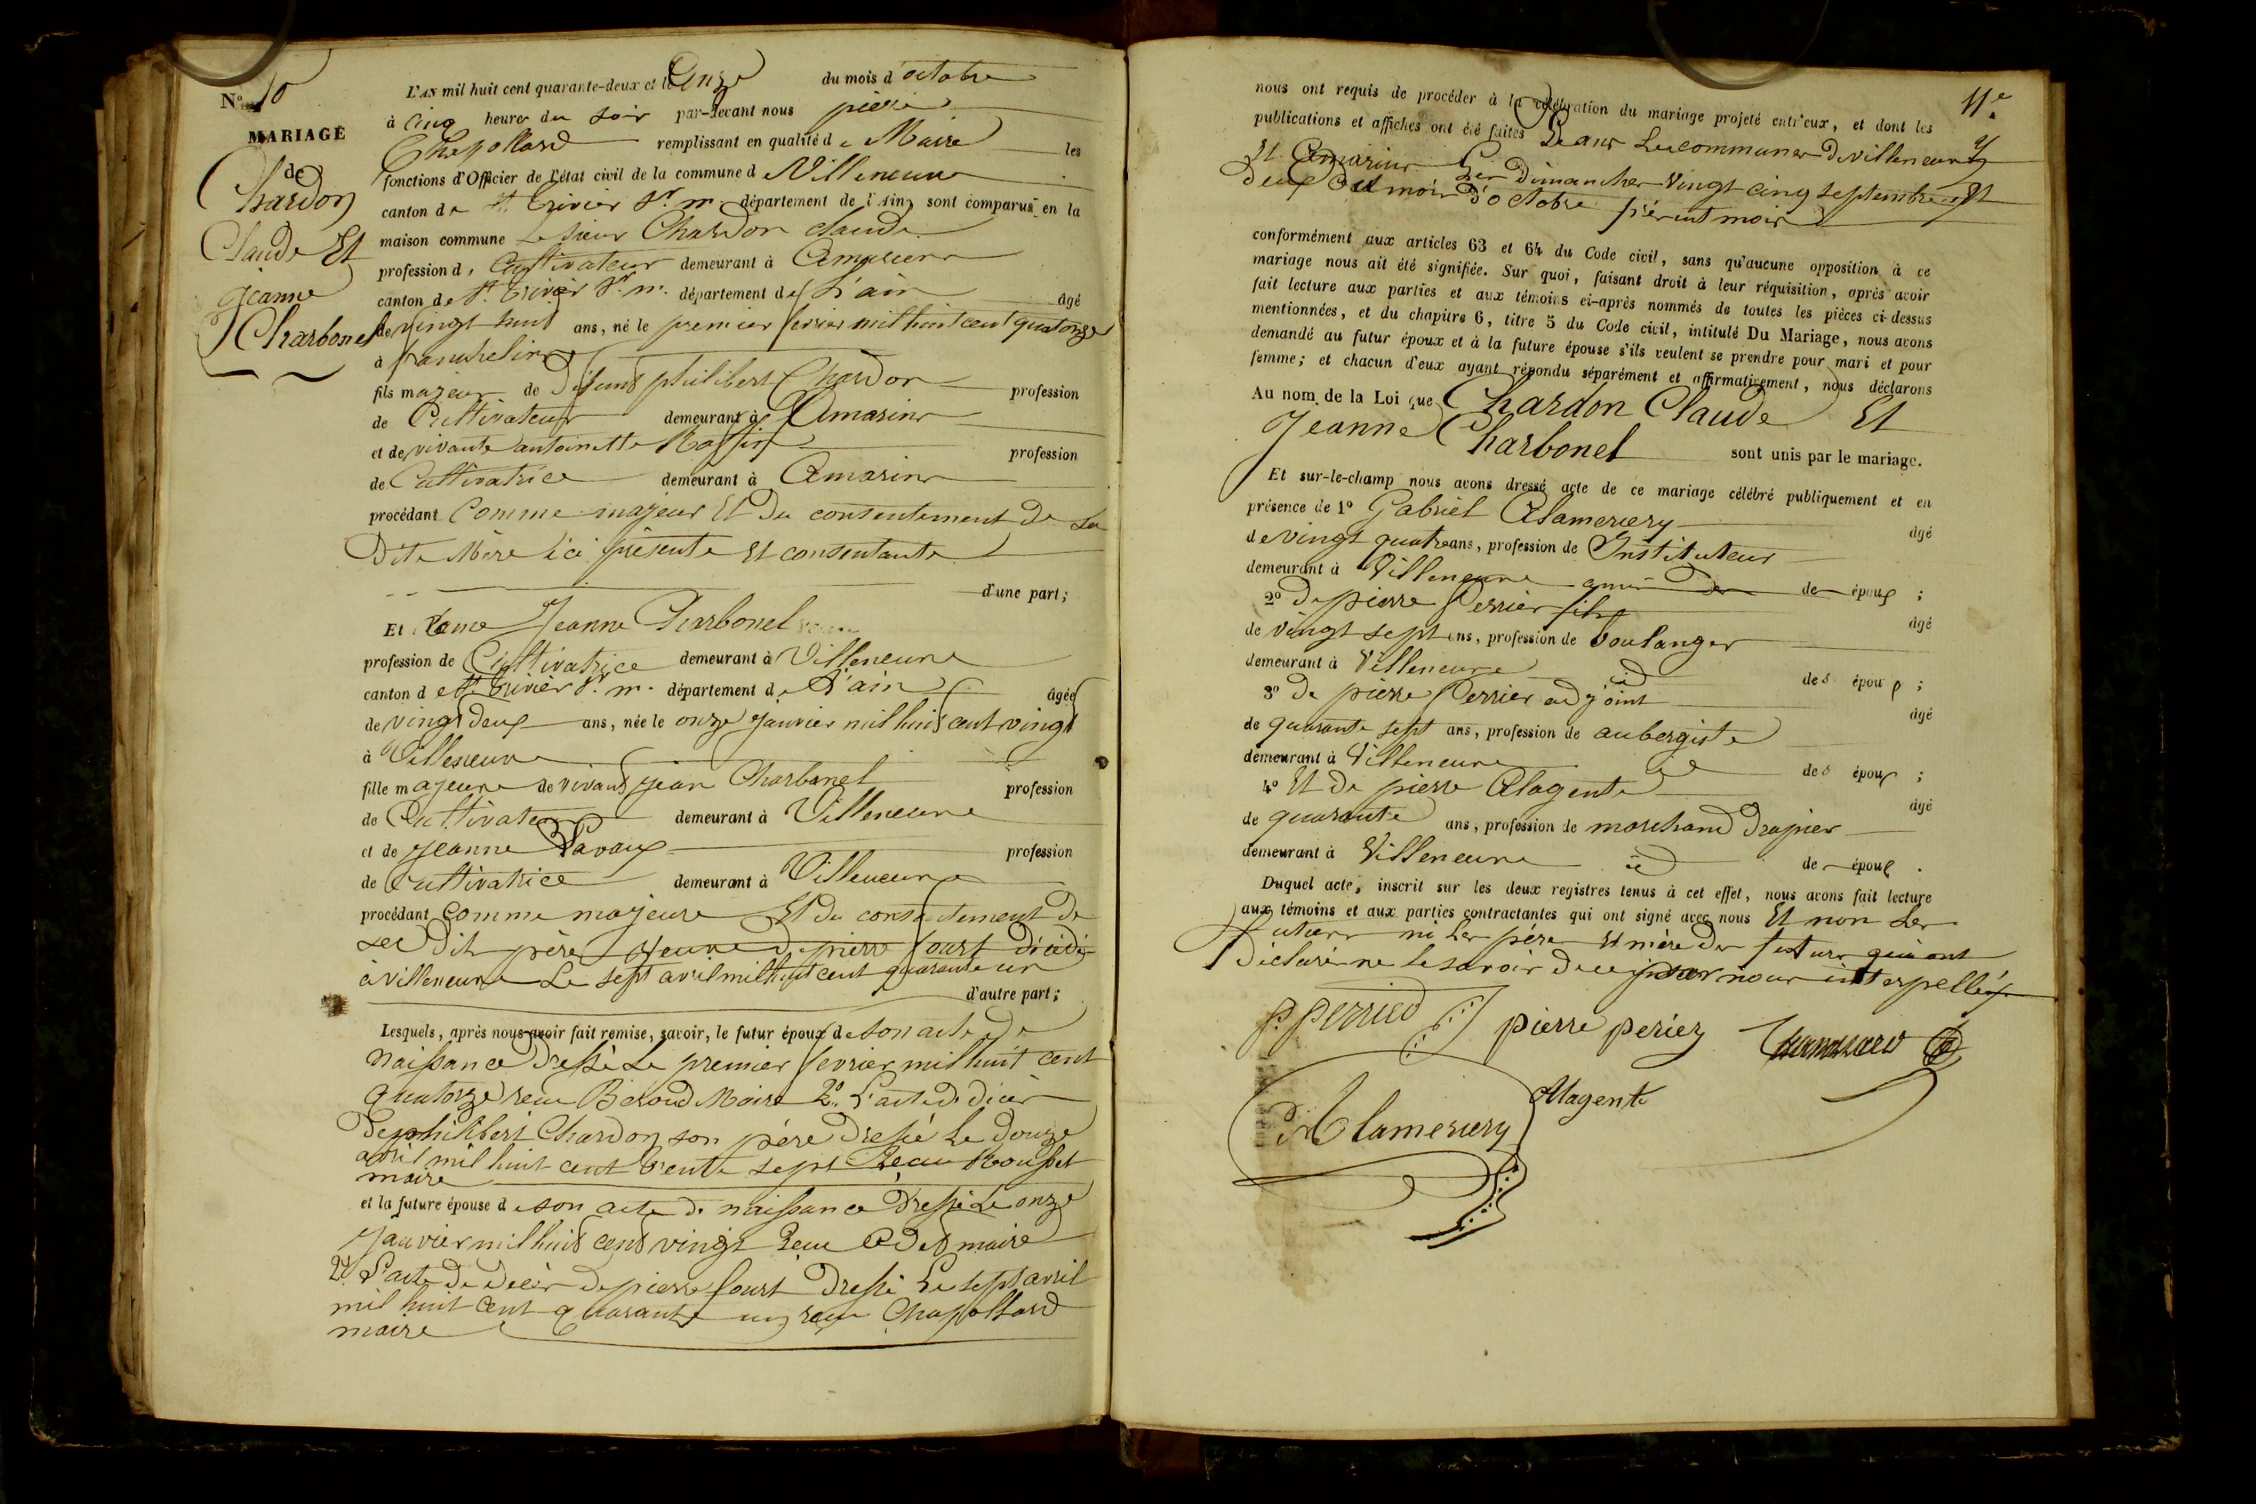 N° 10
MARIAGE
de
Chardon
Claude Et
Jeanne
Charbonel
L'AN mil huit cent quarante-deux et le Onze du mois d'octobre
à cinq heures du soir par-devant nous pierre
Chapollard remplissant en qualité de Maire les
fonctions d'Officier de l'état civil de la commune de Villeneuve
canton de St. Trivier Sr. m. département de l'Ain, sont comparus en la
maison commune Le sieur Chardon claude
profession de Cultivateur demeurant à Amareins
canton de St. Trivier Sr. m. département de L'ain âgé
de vingt huit ans, né le premier fevrier mil huit cent quatorze
à francheleins
fils majeur de Defunt philibert Chardon profession
de Cultivateur demeurant à Amareins
et de vivante antoinette profession
de Cultivatrice demeurant à Amareins
procédant Comme majeur Et Du consentement De sa
Dite Mère ici présente Et consentante
d'une part;
Et Jeanne Charbonel
profession de Cultivatrice demeurant à Villeneuve
canton de St. Trivier Sr. m. département de L'ain âgée
de vingt deux ans, née le onze janvier mil huit cent vingt
à Villeneuve
fille majeure de vivant jean Charbonel profession
de Cultivateur demeurant à Villeneuve
et de jeanne Pavoux profession
de Cultivatrice demeurant à Villeneuve
procédant Comme majeure Et Du consentement De
ses Dit père Veuve De pierre Fourt Décédé
à Villeneuve Le sept avril mil huit cent quarante un
d'autre part;
Lesquels, après nous avoir fait remise, savoir, le futur époux de son acte De
naissance Dressé Le premier fevrier mil huit cent
quatorze reçu Beroud Maire 2° L'acte De Décès
De philibert Chardon son père Dressé Le Douze
avril mil huit cent trente sept Reçu Rousset
maire
et la future épouse de son acte De naissance Dressé Le onze
Janvier mil huit cent vingt Reçu maire
2° L'acte De Décès De pierre Fourt Dressé Le sept avril
mil huit cent quarante un reçu Chapollard
maire
11e
nous ont requis de procéder à la célébration du mariage projeté entr'eux, et dont les
publications et affiches ont été faites Dans Les communes De villeneuve
Et Amareins Les Dimanches Vingt cinq septembre Et
Deux Du mois D'octobre présent mois
conformément aux articles 63 et 64 du Code civil, sans qu'aucune opposition à ce
mariage nous ait été signifiée. Sur quoi, faisant droit à leur réquisition, après avoir
fait lecture aux parties et aux témoins ci-après nommés de toutes les pièces ci-dessus
mentionnées, et du chapitre 6, titre 5 du Code civil, intitulé Du Mariage, nous avons
demandé au futur époux et à la future épouse s'ils veulent se prendre pour mari et pour
femme; et chacun d'eux ayant répondu séparément et affirmativement, nous déclarons
Au nom de la Loi que Chardon Claude Et
Jeanne Charbonel sont unis par le mariage.
Et sur-le-champ nous avons dressé acte de ce mariage célébré publiquement et en
présence de 1° Gabriel Alamercery âgé
de vingt quatre ans, profession de Instituteur
demeurant à Villeneuve ami Des de époux ;
2° De pierre Perrier fils âgé
de vingt sept ans, profession de boulanger
demeurant à Villeneuve id des époux ;
3° De pierre Perrier adjoint âgé
de quarante sept ans, profession de aubergiste
demeurant à Villeneuve id des époux ;
4° Et De pierre Alagente âgé
de quarante ans, profession de marchand Drapier
demeurant à Villeneuve id de époux .
Duquel acte, inscrit sur les deux registres tenus à cet effet, nous avons fait lecture
aux témoins et aux parties contractantes qui ont signé avec nous Et non Les
futurs ni Les père Et mère Des futurs qui ont
Déclaré ne le savoir De ce par nous interpellés
P. perrier pierre perier
Alamercery Alagente